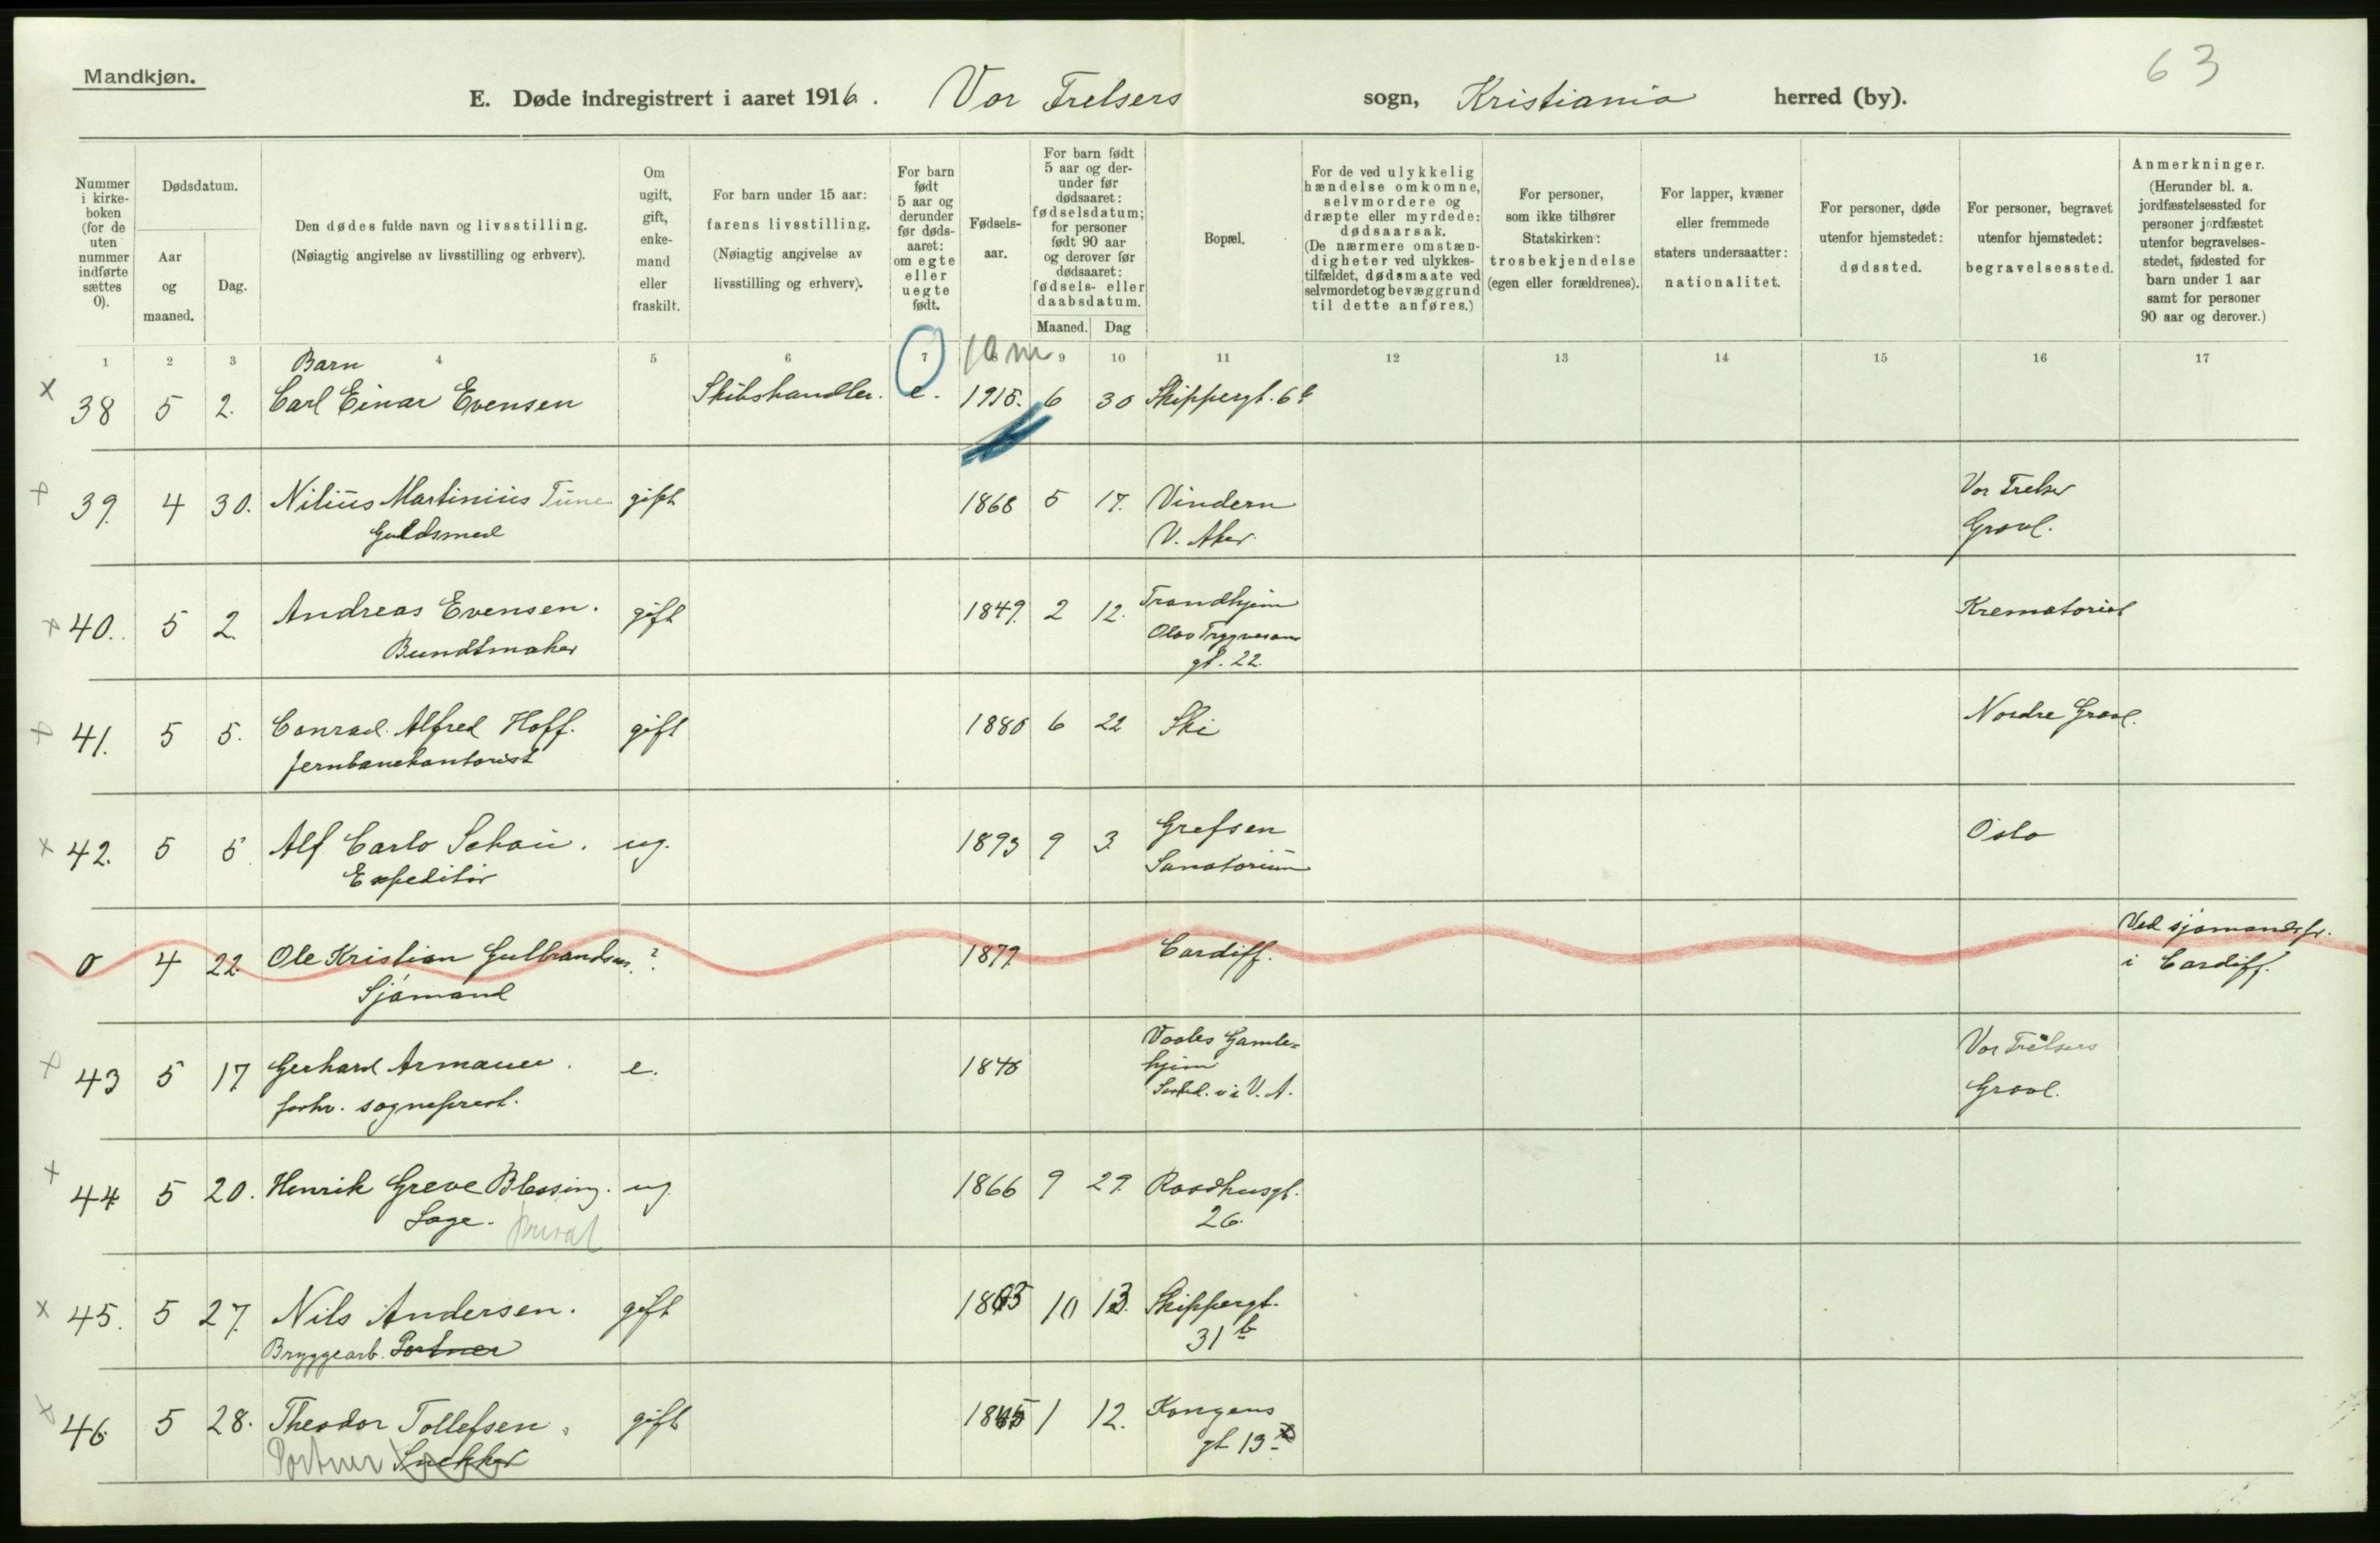 Mandkjøn.
63
E. Døde indregistrert i aaret 1916. Vor Frelsers sogn, Kristiania herred (by).
Nummer i kirke-boken (for de uten nummer indførte sættes 0).
Dødsdatum.
Aar og maaned.
Dag.
Den dødes fulde navn og livsstilling.
(Nøiagtig angivelse av livsstilling og erhverv).
Om ugift, gift, enke-mand eller fraskilt.
For barn under 15 aar: farens livsstilling.
(Nøiagtig angivelse av livsstilling og erhverv).
For barn født 5 aar og derunder før døds-aaret: om egte eller uegte født.
Fødsels-aar.
For barn født 5 aar og der-under før dødsaaret: fødselsdatum; for personer født 90 aar og derover før dødsaaret: fødsels- eller daabsdatum.
Maaned. Dag
Bopæl.
For de ved ulykkelig hændelse omkomne, selvmordere og dræpte eller myrdede: dødsaarsak.
(De nærmere omstæn-digheter ved ulykkes-tilfældet, dødsmaate ved selvmordet og bevæggrund til dette anføres.)
For personer, som ikke tilhører Statskirken: trosbekjendelse (egen eller forældrenes).
For lapper, kvæner eller fremmede staters undersaatter: nationalitet.
For personer, døde utenfor hjemstedet: dødssted.
For personer, begravet utenfor hjemstedet: begravelsessted.
Anmerkninger.
(Herunder bl. a. jordfæstelsessted for personer jordfæstet utenfor begravelses-stedet, fødested for barn under 1 aar samt for personer 90 aar og derover.)
1 2 3 4 5 6 7 8 9 10 11 12 13 14 15 16 17
Barn 10 m
x 38 5 2. Carl Einar Evensen Skibshandler. e. 1915. 6 30 Skippergt. 6 b
x 39. 4 30. Nilius Martinius Tune gift 1868 5 17. Vindern Vor Frelser
Guldsmed V. Aker. Gravl.
x 40. 5 2. Andreas Evensen. gift 1849. 2 12. Trondhjem Krematoriet
Bundtmaker Olav Trygvesons
gt. 22.
x 41. 5 5. Conrad Alfred Hoff. gift 1880 6 22 Ski Nordre Gravl.
Jernbanekontorist
x 42. 5 5. Alf Carlo Schau. ug. 1893 9 3. Grefsen Oslo
Expeditør Sanatorium
0 4 22. Ole Kristian Gulbrandsen. ? 1879. Cardiff. Ved sjømandspr.
Sjømand i Cardiff.
x 43 5 17 Gerhard Armauer. e. 1848 Gamle= Vor Frelsers
forhv. sogneprest. hjem Gravl.
i V. A.
x 44 5 20. Henrik Greve Blessing. ug. 1866 9 29. Raadhusgt.
Læge. privat 26.
x 45. 5 27. Nils Andersen. gift 10 13. Skippergt.
Bryggearb. Portner 31 b
x 46. 5 28. Theodor Tollefsen. gift 1 12. Kongens
Portner Snekker gt 13